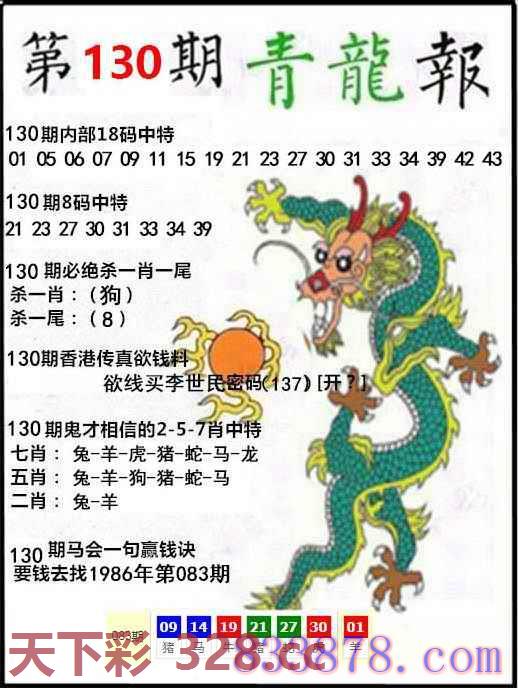 第130期青龍報
130期内部18码中特
01 05 06 07 09 11 15 19 21 23 27 30 31 33 34 39 42 43
130期8码中特
21 23 27 30 31 33 34 39
130期必绝杀一肖一尾
杀一肖：（狗）
杀一尾：（8）
130期香港传真欲钱料
欲线买李世民密码(137) [开?]
130期鬼才相信的2-5-7肖中特
七肖：兔-羊-虎-猪-蛇-马-龙
五肖：兔-羊-狗-猪-蛇-马
二肖：兔-羊
130期马会一句赢钱诀
要钱去找1986年第083期
083期 09 14 19 21 27 30 01
猪 马 牛 猪 虎 羊
天下彩 328.cc